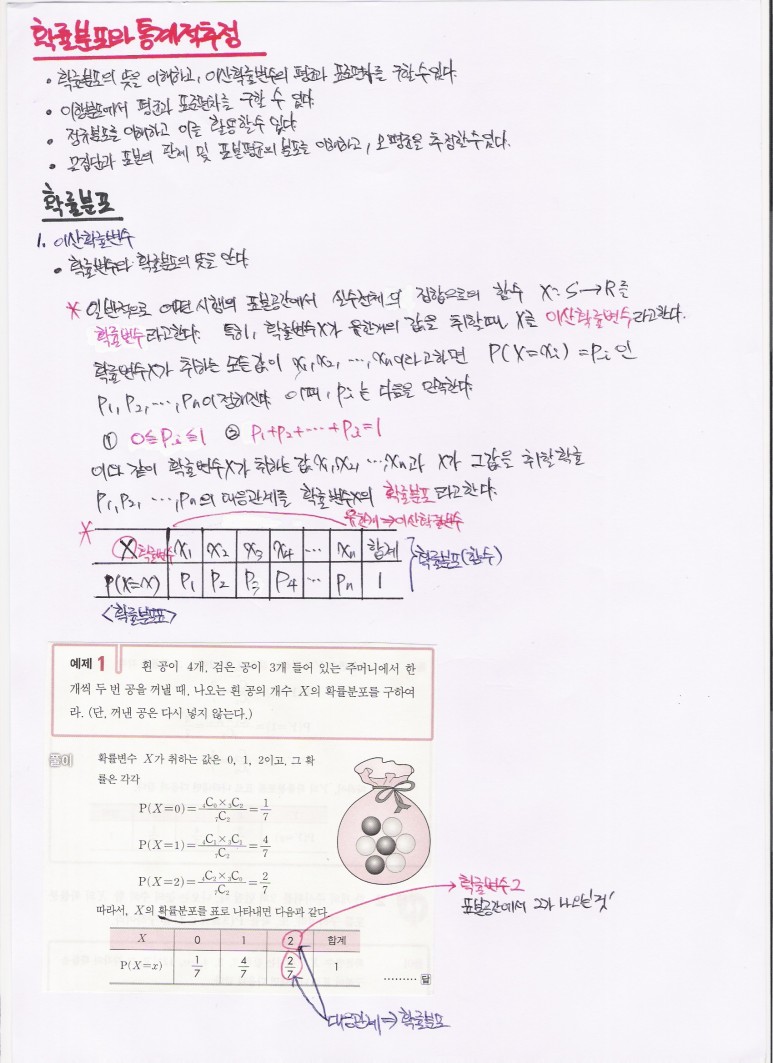 확률분포와 통계적추정
• 확률분포의 뜻을 이해하고, 이산확률변수의 평균과 표준편차를 구할수있다.
• 이항분포에서 평균과 표준편차를 구할 수 있다.
• 정규분포를 이해하고 이를 활용할수 있다
• 모집단과 표본의 관계 및 표본평균의 분포를 이해하고, 모평균을 추정할수있다.
확률분포
1. 이산확률변수
• 확률변수와 확률분포의 뜻을 안다
* 일반적으로 어떤 시행의 표본공간에서 실수전체의 집합으로의 함수 X: S→R를
확률변수라고한다. 특히, 확률변수X가 유한개의 값을 취할때 X를 이산확률변수라고한다.
확률변수X가 취하는 모든값이 x₁, x₂, ⋯, xₙ이라고하면 P(X=xᵢ)=pᵢ인
P₁, P₂, ⋯, Pₙ이 정해진다. 이때, pᵢ는 다음을 만족한다.
① 0≦Pᵢ≦1 ② P₁+P₂+⋯+Pᵢ=1
이와 같이 확률변수X가 취하는 값 x₁, x₂, ⋯, xₙ과 X가 그값을 취할확률
P₁, P₂, ⋯, Pₙ의 대응관계를 확률변수X의 확률분포라고한다.
* 유한개⇒이산확률변수
X 확률변수 x₁ x₂ x₃ x₄ ⋯ xₙ 합계
확률분포(함수)
P(X=x) P₁ P₂ P₃ P₄ ⋯ Pₙ 1
<확률분포표>
예제 1 흰 공이 4개, 검은 공이 3개 들어 있는 주머니에서 한
개씩 두 번 공을 꺼낼 때, 나오는 흰 공의 개수 X의 확률분포를 구하여
라. (단, 꺼낸 공은 다시 넣지 않는다.)
풀이 확률변수 X가 취하는 값은 0, 1, 2이고, 그 확
률은 각각
P(X=0)=₄C₀×₃C₂/₇C₂=1/7
P(X=1)=₄C₁×₃C₁/₇C₂=4/7
P(X=2)=₄C₂×₃C₀/₇C₂=2/7
확률변수 2
표본공간에서 2가 나오는'것'
따라서, X의 확률분포를 표로 나타내면 다음과 같다.
X 0 1 2 합계
P(X=x) 1/7 4/7 2/7 1
⋯⋯⋯ 답
대응관계⇒확률분포